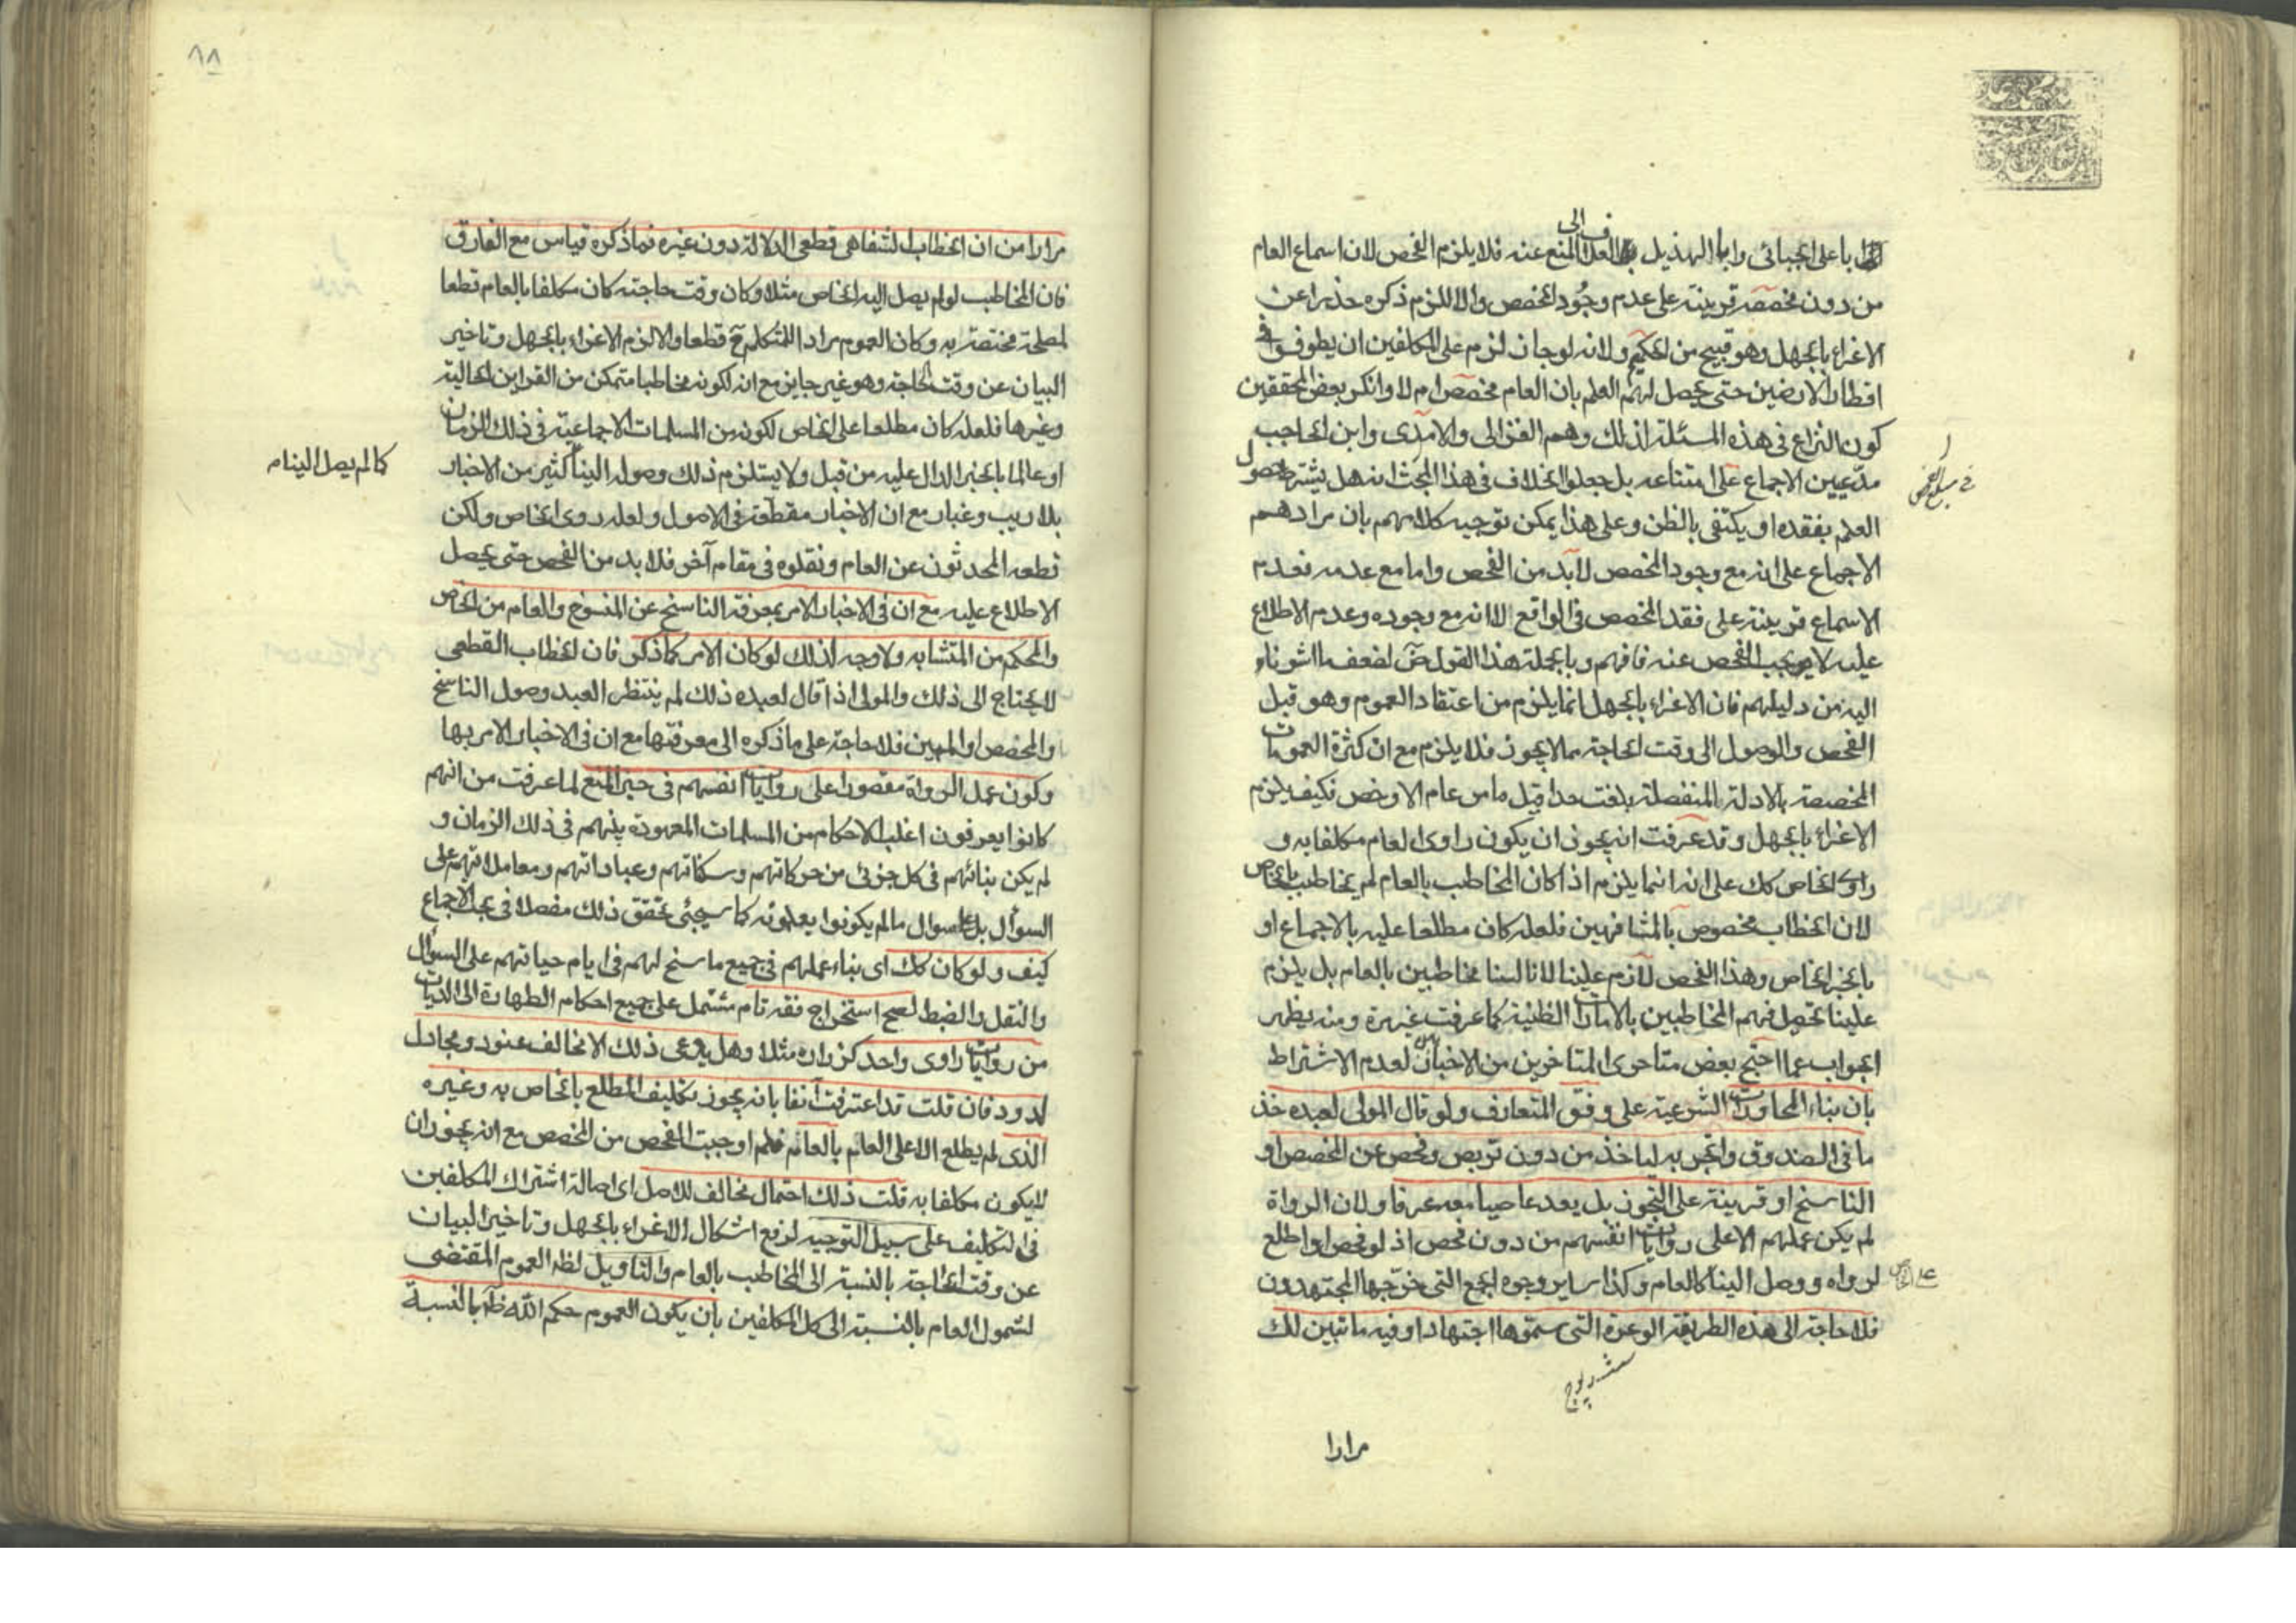 ابا على الجبائى وابا الهذيل العلاف الى المنع عنه فلا يلزم الفحص لان اسماع العام
من دون مخصصه قرينة على عدم وجود المخصص والا للزم ذكره حذرا عن
الاغراء بالجهل وهو قبيح من الحكيم ولانه لو جاز لزم على المكلفين ان يطوفوا فى
اقطار الارضين حتى يحصل لهم العلم بان العام مخصص ام لا وانكر بعض المحققين
كون النزاع فى هذه المسئلة اذ لك وهم الغزالى والامدى وابن الحاجب
مدّعيين الاجماع على امتناعه بل جعلوا الخلاف فى هذا المبحث انه هل يشترط حصول
العلم بفقده او يكتفى بالظن وعلى هذا يمكن توجيه كلامهم بان مرادهم
الاجماع على انه مع وجود المخصص لابد من الفحص واما مع عدمه فعدم
الاسماع قرينة على فقد المخصص فى الواقع لا انه مع وجوده وعدم الاطلاع
عليه لا يجب الفحص عنه فافهم وبالجملة هذا القول ضَ لضعف ما اشرنا
اليه من دليلهم فان الاغراء بالجهل انما يلزم من اعتقاد العموم وهو قبل
الفحص والوصول الى وقت الحاجة مما لا يجوز فلا يلزم مع ان كثرة العمومات
المخصصة بالادلة المنفصلة بلغت حدا قيل ما من عام الا وخص فكيف يلزم
الاغراء بالجهل وقد عرفت انه يجوز ان يكون راوى العام مكلفا به و
راوى الخاص كك على انه انما يلزم اذا كان المخاطب بالعام لم يخاطب بالخاص
لان الخطاب مخصوص بالمشافهين فلعله كان مطلعا عليه بالاجماع او
بالخبر الخاص وهذا الفحص لازم علينا لانا لسنا مخاطبين بالعام بل يلزم
علينا تحصيل فهم المخاطبين بالامارات الظنية كما عرفت غير مرة ومنه يظهر
الجواب عما احتج بعض متاخرى المتاخرين من الاخباريين لعدم الاشتراط
بان بناء المحاورات الشرعية على وفق المتعارف ولو قال المولى لعبده خذ
ما فى الصندوق واتجر به لياخذ من دون تربص وفحص عن المخصص او
الناسخ او قرينة على التجوز بل يعد عاصيا معه عرفا ولان الرواة
لم يكن عملهم الا على روايات انفسهم من دون فحص اذ لو فحص او اطلع
لرواه ووصل الينا كالعام وكذا ساير وجوه الجمع التى خرّجها المجتهدون
فلا حاجة الى هذه الطريقة الوعرة التى سمّوها اجتهادا وفيه ما تبين لك
مرارا
٨٨
مرارا من ان الخطاب الشفاهى قطعى الدلالة دون غيره فما ذكره قياس مع الفارق
فان المخاطب لو لم يصل اليه الخاص مثلا وكان وقت حاجته كان مكلفا بالعام قطعا
لمصلحة مختصة به وكان العموم مراد المتكلم حَ قطعا والا لزم الاغراء بالجهل وتاخير
البيان عن وقت الحاجة وهو غير جايز مع انه لكونه مخاطبا متمكن من القراين الحالية
وغيرها فلعله كان مطلعا على الخاص لكونه من المسلمات الاجماعية فى ذلك الزمان
او عالما بالخبر الدال عليه من قبل ولا يستلزم ذلك وصوله الينا كثير من الاخبار
كما لم يصل الينا م
بلا ريب وغبار مع ان الاخبار مقطعة فى الاصول ولعله روى الخاص ولكن
قطعه المحدثون عن العام ونقلوه فى مقام آخر فلا بد من الفحص حتى يحصل
الاطلاع عليه مع ان فى الاخبار الامر بمعرفة الناسخ عن المنسوخ والعام من الخاص
والمحكم من المتشابه ولا وجه لذلك لو كان الامر كما ذكر فان الخطاب القطعى
لا يحتاج الى ذلك والمولى اذا قال لعبده ذلك لم ينتظر العبد وصول الناسخ
والمخصص او المبين فلا حاجة على ما ذكره الى معرفتها مع ان فى الاخبار الامر بها
وكون عمل الرواة مقصورا على روايات انفسهم فى حيز المنع لما عرفت من انهم
كانوا يعرفون اغلب الاحكام من المسلمات المعهودة بينهم فى ذلك الزمان و
لم يكن بنائهم فى كل جزئى من حركاتهم وسكناتهم وعباداتهم ومعاملاتهم على
السؤال بل على سوال ما لم يكونوا يعلمونه كما سيجئى تحقق ذلك مفصلا فى بحث الاجماع
كيف ولو كان كك اى بناء عملهم فى جميع ما سنح لهم فى ايام حياتهم على السؤال
والنقل والضبط لصح استخراج فقه تام مشتمل على جميع احكام الطهارة الى الديات
من روايات راوى واحد كزرارة مثلا وهل يدعى ذلك الا مخالف عنود ومجادل
لدود فان قلت قد اعترفت آنفا بانه يجوز تكليف المطلع بالخاص به وغيره
الذى لم يطلع الا على العام بالعام فلم اوجبت الفحص من المخصص مع انه يجوز ان
لا يكون مكلفا به قلت ذلك احتمال مخالف للاصل اى اصالة اشتراك المكلفين
فى التكليف على سبيل التوجيه لرفع اشكال الاغراء بالجهل وتاخير البيان
عن وقت الحاجة بالنسبة الى المخاطب بالعام والتاويل لظه العموم المقتضى
لشمول العام بالنسبة الى كل المكلفين بان يكون العموم حكم الله ظاَ بالنسبة